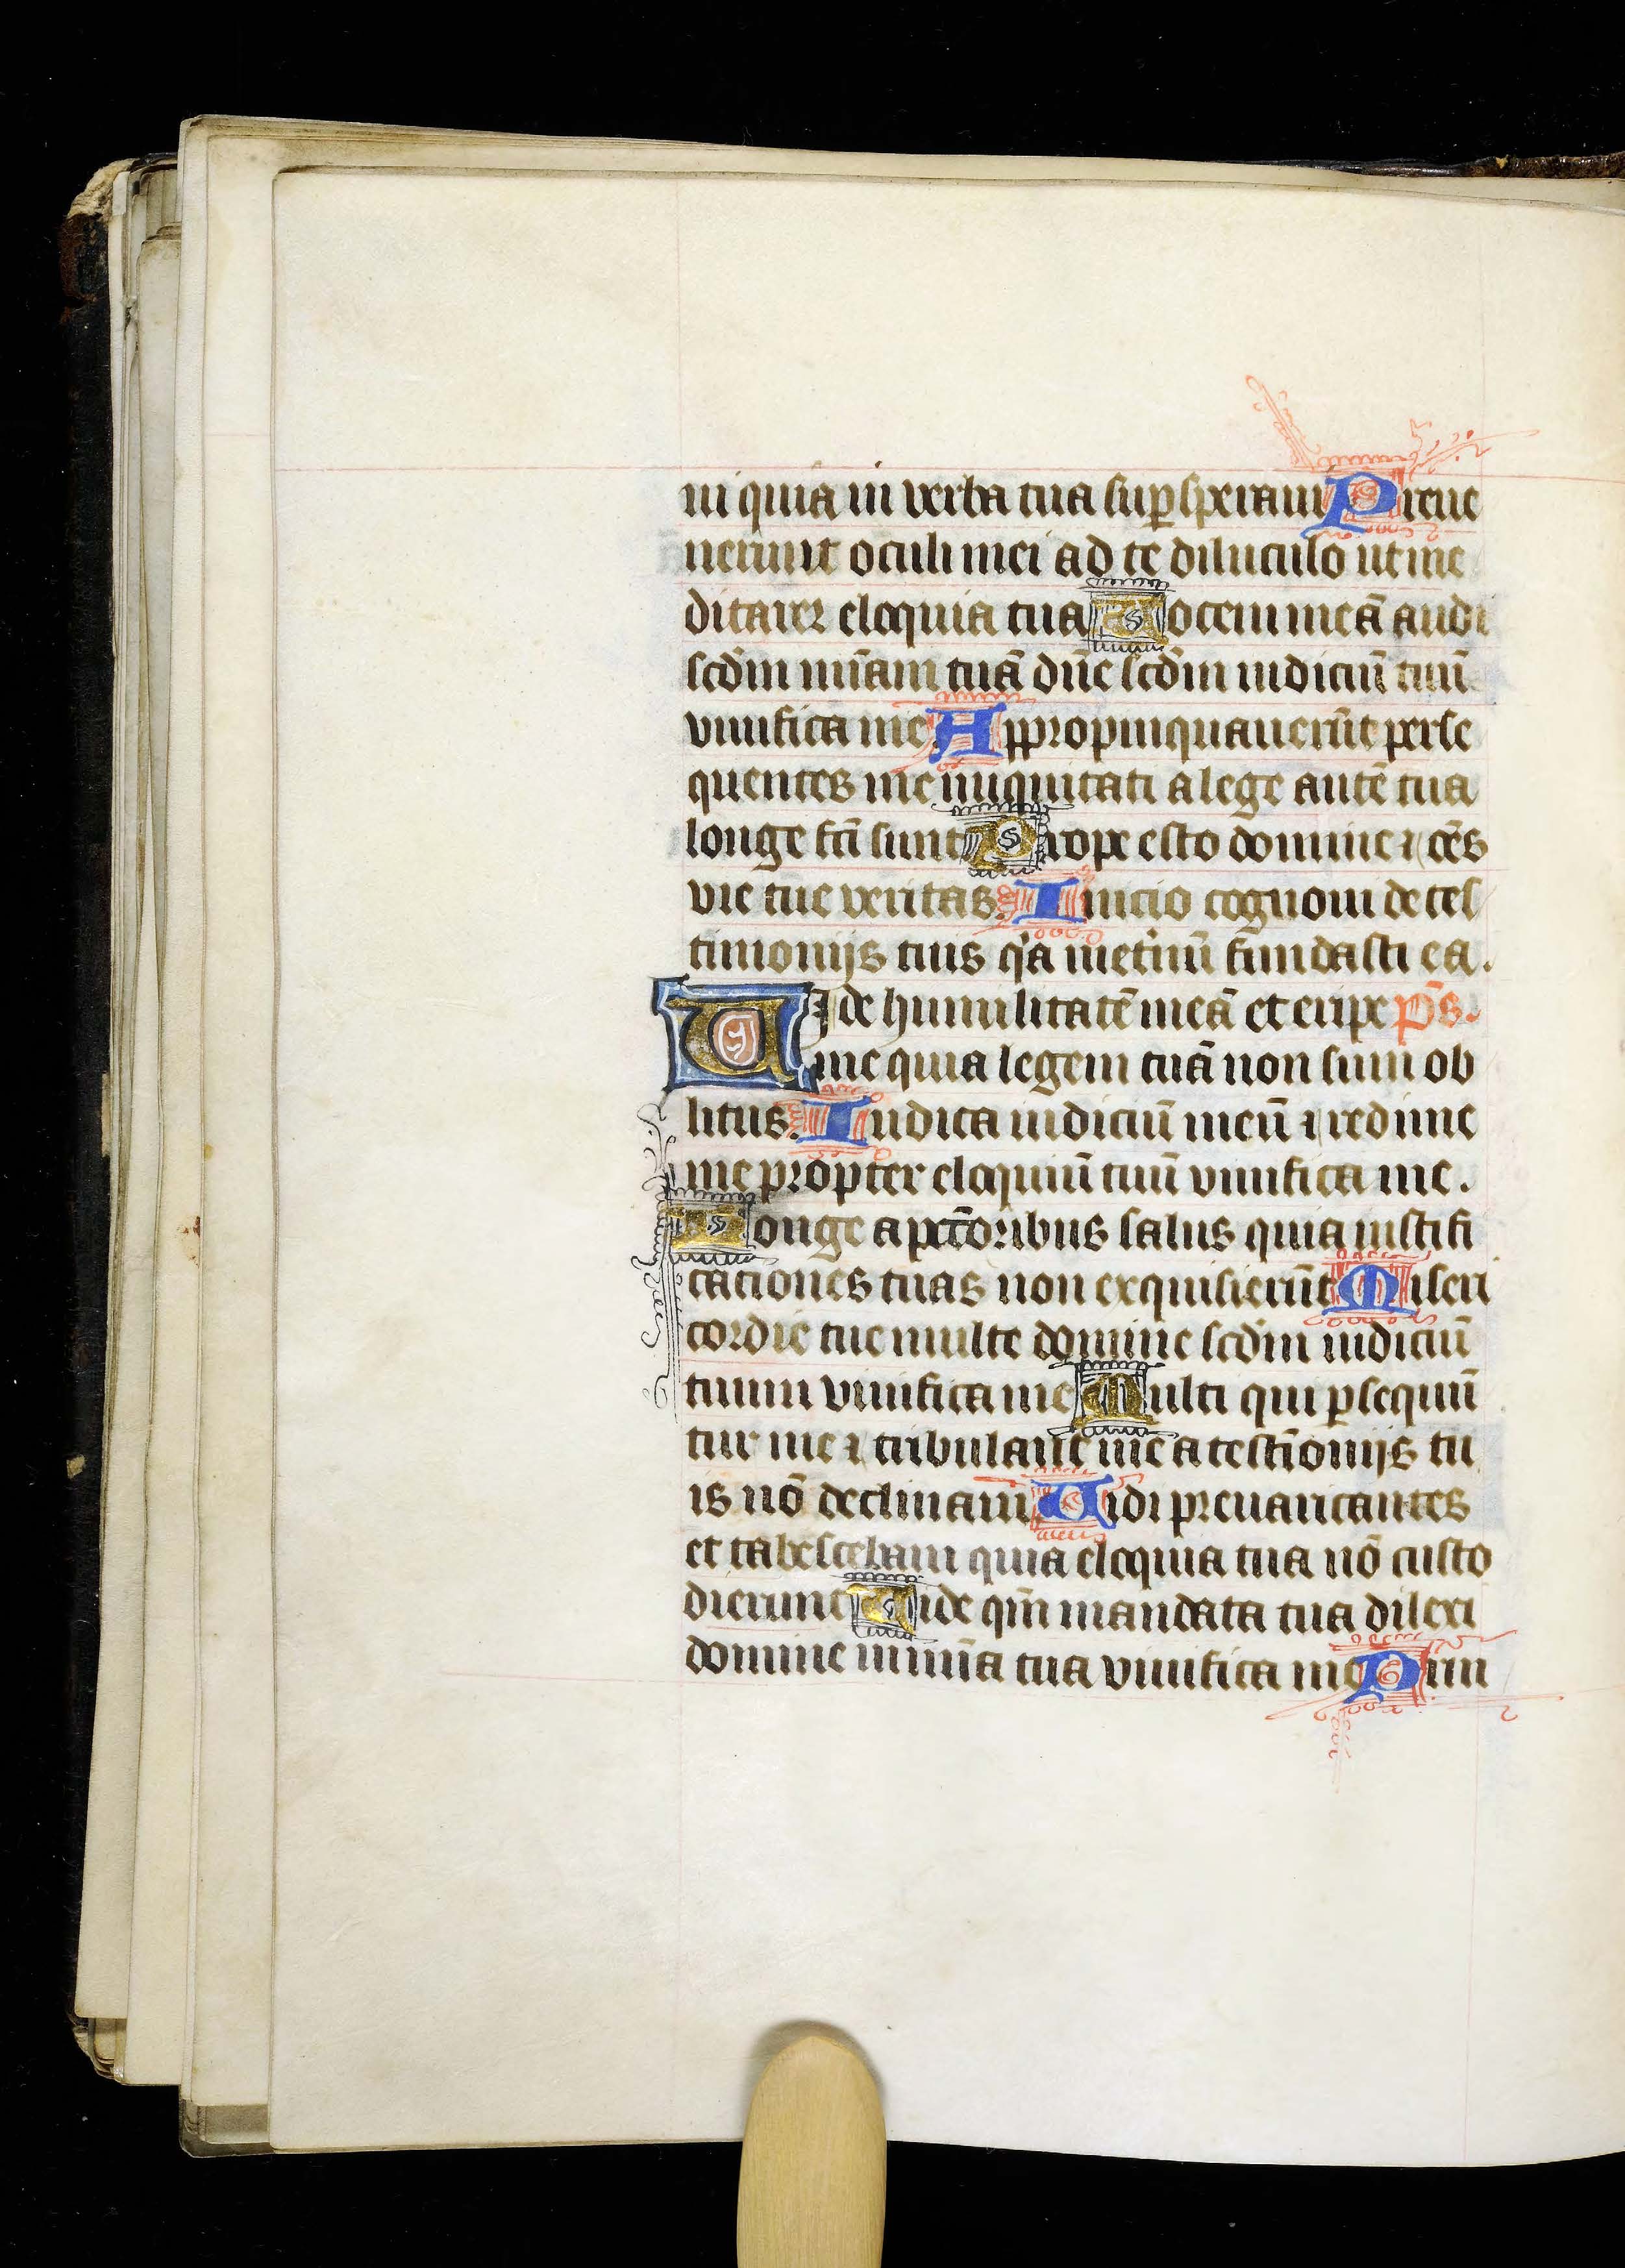 ui quia in verba tua sup̱ speraui Preue
nerunt oculi mei ad te diluculo ut me
ditarer eloquia tua Uocem meā audi
scd̄m mīam tuā dn̄e scd̄m iudiciū tuū
viuifica me Appropinquauerūt perse
quentes me iniquitati a lege autē tua
longe fc̄i sunt Prope esto domine ⁊ oēs
vie tue veritas. Inicio cognoui de tes
timonijs tuis qͥa in etͨnū fundasti ea.
Uide humilitatē meā et eripe p̄s.
me quia legem tuā non sum ob
litus. Iudica iudiciū meū ⁊ redime
me propter eloquiū tuū viuifica me.
Longe a pctōribus salus quia iustifi
cationes tuas non exquisierūt Miseri
cordie tue multe domine scd̄m iudiciū
tuum viuifica me Multi qui ꝑsequū
tur me ⁊ tribulant me a testīonijs tu
is nō declinaui Uidi preuaricantes
et tabescebam quia eloquia tua nō custo
dierunt Uide qm̄ mandata tua dilexi
domine in mīa tua viuifica me Prin